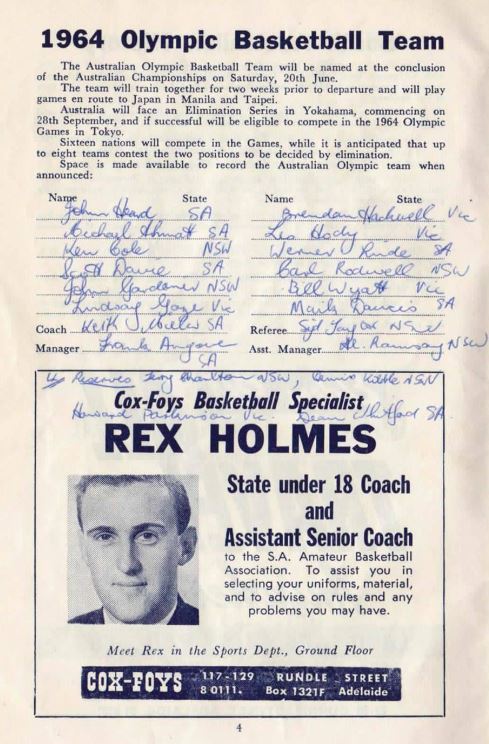 1964 Olympic Basketball Team
The Australian Olympic Basketball Team will be named at the conclusion
of the Australian Championships on Saturday, 20th June.
The team will train together for two weeks prior to departure and will play
games en route to Japan in Manila and Taipei.
Australia will face an Elimination Series in Yokahama, commencing on
28th September, and if successful will be eligible to compete in the 1964 Olympic
Games in Tokyo.
Sixteen nations will compete in the Games, while it is anticipated that up
to eight teams contest the two positions to be decided by elimination.
Space is made available to record the Australian Olympic team when
announced:
Name State
John Heard SA
Michael Ahmatt SA
Ken Cole NSW
Scott Davie SA
John Gardiner NSW
Lindsay Gaze Vic
Coach Keith Miller SA
Manager Frank Angove
SA
Name State
Brendan Hackwell Vic
Les Hody Vic
Werner Linde SA
Carl Rodwell NSW
Bill Wyatt Vic
Mark Dancis SA
Referee Syd Taylor NSW
Asst. Manager Al. Ramsay NSW
Reserves Terry Charlton NSW, Dennis Kibble NSW
Howard Parkinson Vic. Dean Whitford SA.
Cox-Foys Basketball Specialist
REX HOLMES
State under 18 Coach
and
Assistant Senior Coach
to the S.A. Amateur Basketball
Association. To assist you in
selecting your uniforms, material,
and to advise on rules and any
problems you may have.
Meet Rex in the Sports Dept., Ground Floor
COX-FOYS 117-129 RUNDLE STREET
8 0111. Box 1321F Adelaide
4